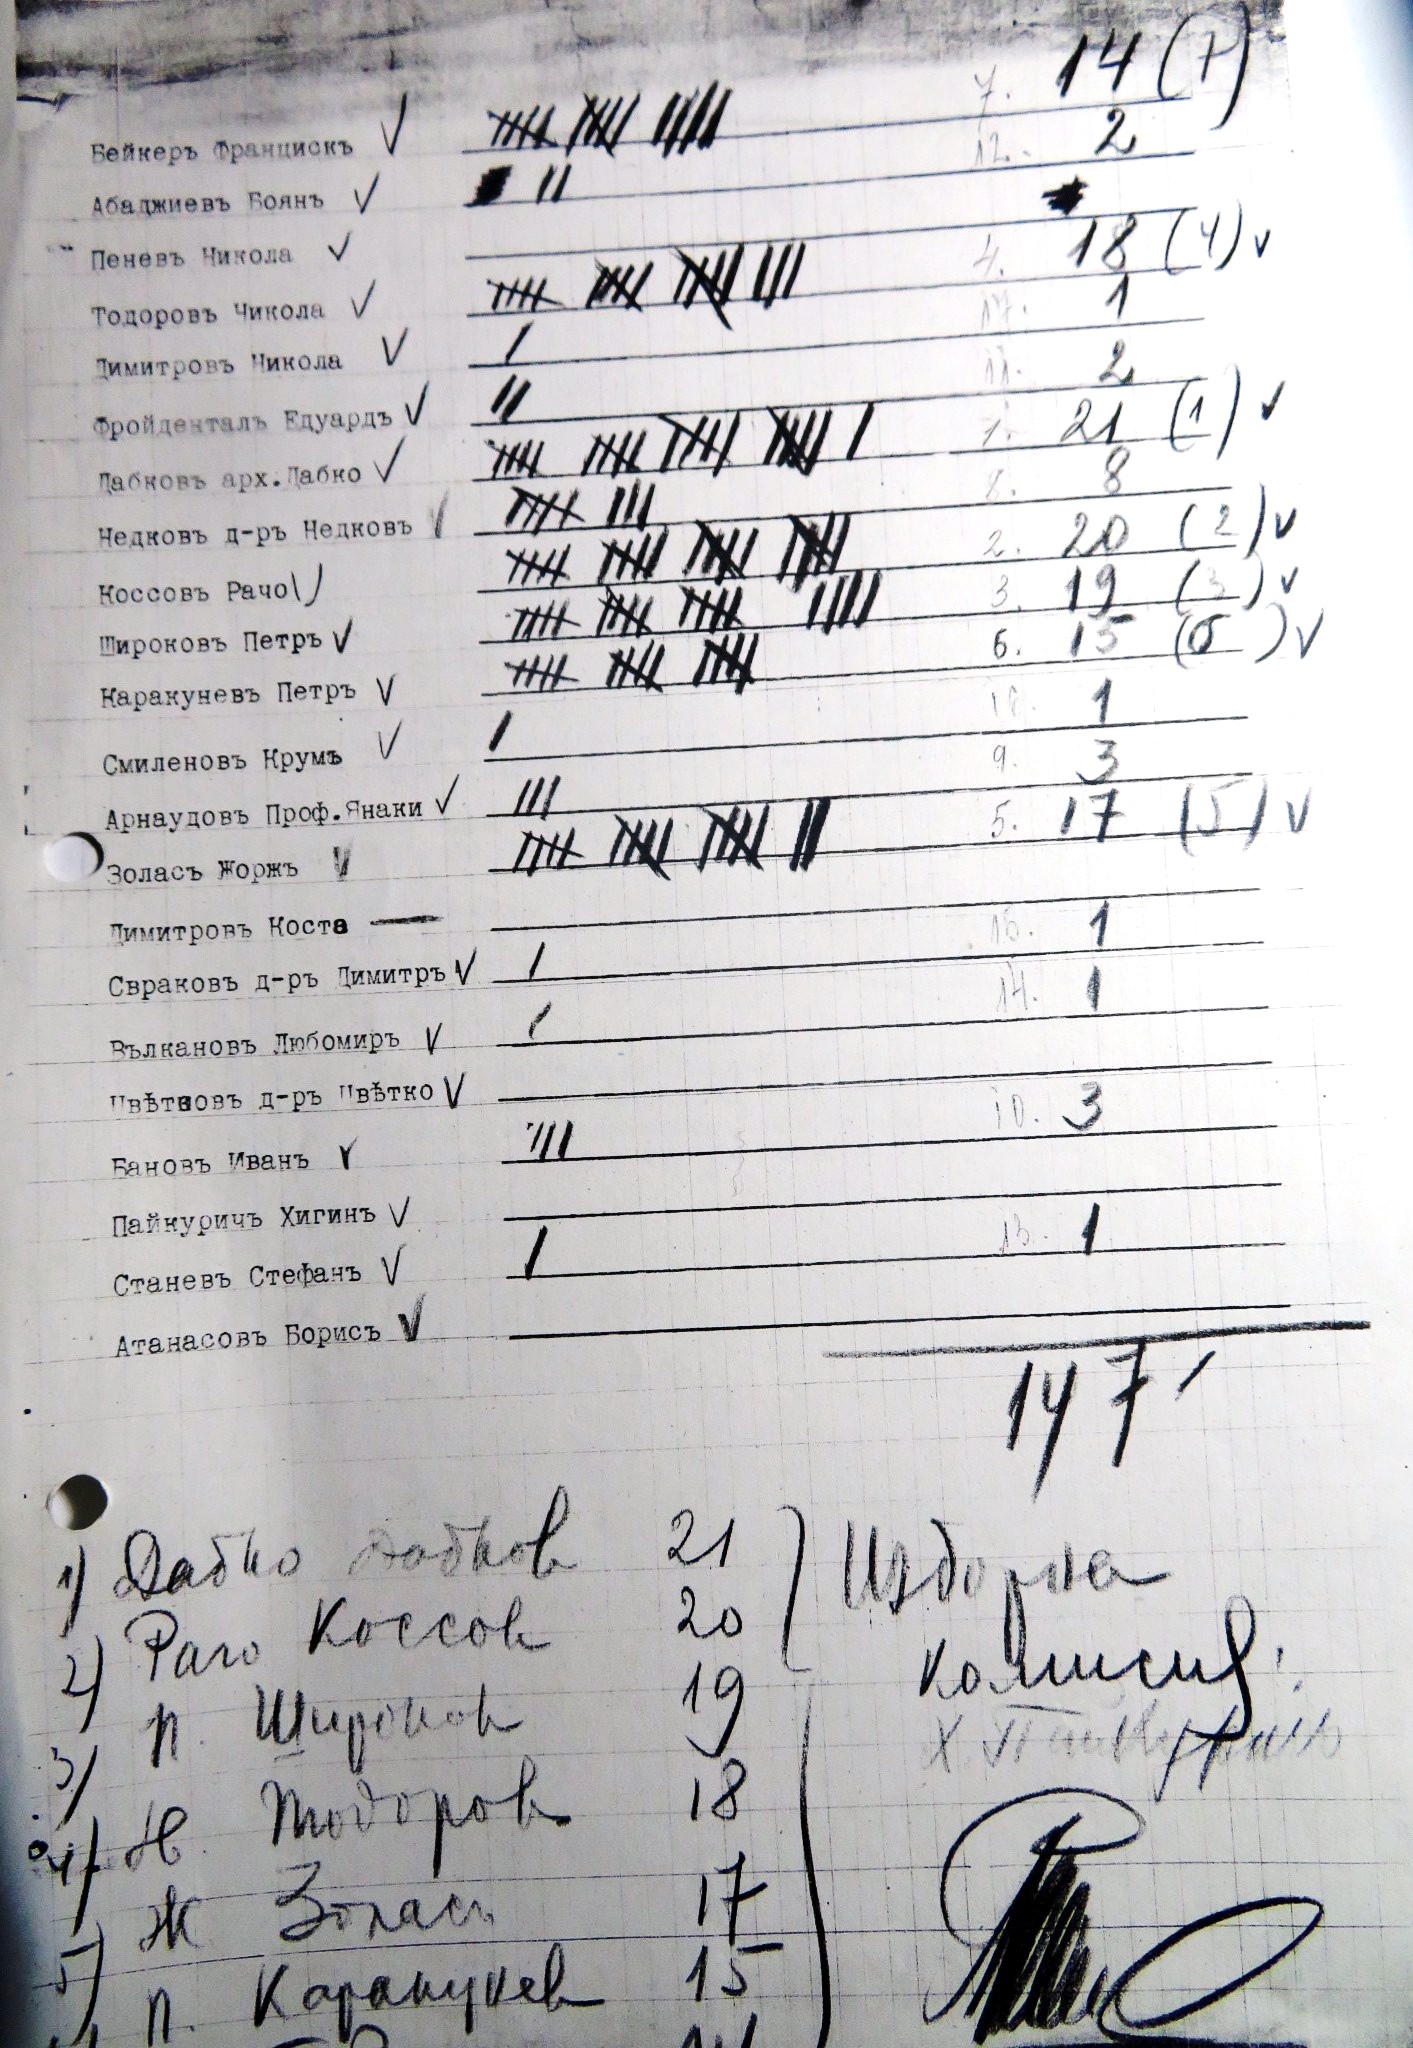 Бейкеръ Францискъ 7. 14 (7)
Абаджиевъ Боянъ 12. 2
Пеневъ Никола
Тодоровъ Никола 4. 18 (4)
Димитровъ Никола 17. 1
Фройденталъ Едуардъ 11. 2
Дабковъ арх.Дабко 1. 21 (1)
Недковъ д-ръ Недковъ 8. 8
Коссовъ Рачо 2. 20 (2)
Широковъ Петръ 3. 19 (3)
Каракуневъ Петръ 6. 15 (6)
Смиленовъ Крумъ 1
Арнаудовъ Проф.Янаки 9. 3
Золасъ Жоржъ 5. 17 (5)
Димитровъ Коста
Свраковъ д-ръ Димитръ 1
Вълкановъ Любомиръ 14. 1
Цвѣтковъ д-ръ Цвѣтко
Бановъ Иванъ 10. 3
Пайкуричъ Хигинъ
Станевъ Стефанъ 13. 1
Атанасовъ Борисъ
147
1) Дабко Дабков 21
2) Рачо Коссов 20
3) П. Широков 19
4) Н. Тодоров 18
5) Ж Золас 17
П. Каракунев 15
Изборна
комисия: